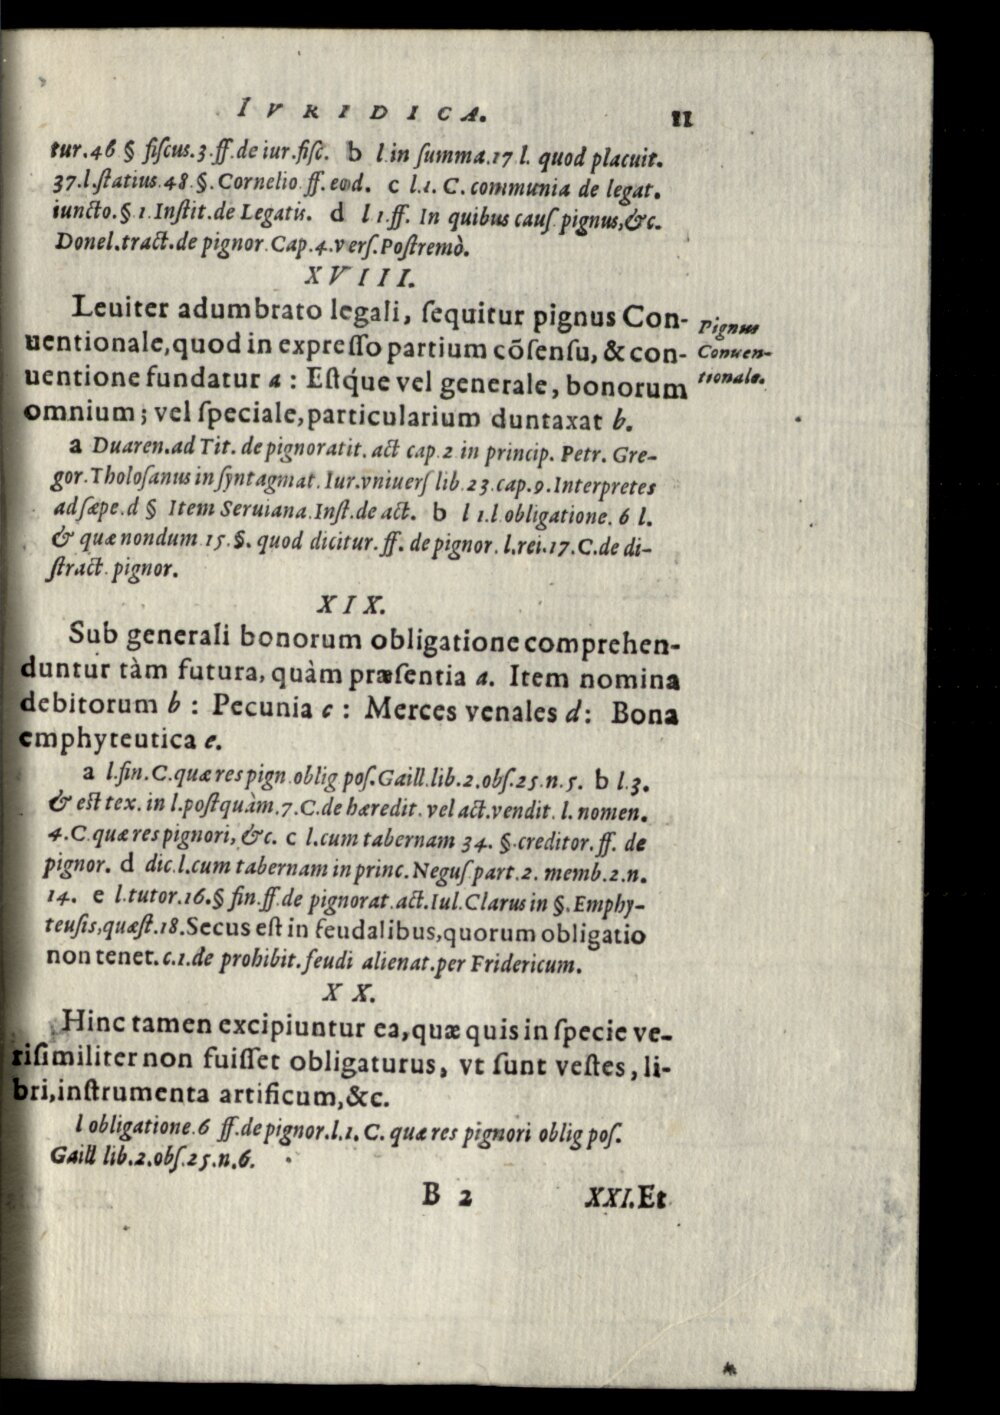 IVRIDICA. 11
tur.46 § fiſcus.3.ff.de iur.fiſc. b l.in ſumma.17 l. quod placuit.
37.l.ſtatius.48.§.Cornelio.ff.eod. c l.1. C. communia de legat.
iuncto.§ 1.Inſtit.de Legatis. d l 1.ff. In quibus cauſ.pignus,&c.
Donel.tract.de pignor.Cap.4.verſ.Poſtremò.
XVIII.
Leuiter adumbrato legali, ſequitur pignus Con-
uentionale,quod in expreſſo partium cõſenſu, & con-
uentione fundatur a : Eſtq́ue vel generale, bonorum
omnium; vel ſpeciale,particularium duntaxat b.
Pignus
Conuen-
tionale.
a Duaren.ad Tit. de pignoratit. act cap.2 in princip. Petr. Gre-
gor.Tholoſanus in ſyntagmat.Iur.vniuerſ lib.23.cap.9.Interpretes
ad ſæpe.d § Item Seruiana.Inſt.de act. b l 1.l.obligatione. 6 l.
& quæ nondum 15.§. quod dicitur.ff. de pignor. l.rei.17.C.de di-
ſtract.pignor.
XIX.
Sub generali bonorum obligatione comprehen-
duntur tàm futura, quàm præſentia a. Item nomina
debitorum b : Pecunia c : Merces venales d: Bona
emphyteutica e.
a l.fin.C.quæ res pign.oblig poſ.Gaill.lib.2.obſ.25.n.5. b l.3.
& eſt tex. in l.poſtquàm.7.C.de hæredit. vel act.vendit. l. nomen.
4.C.quæ res pignori, &c. c l.cum tabernam 34. §.creditor.ff. de
pignor. d dic.l.cum tabernam in princ.Neguſ.part.2. memb.2.n.
14. e l.tutor.16.§ fin.ff.de pignorat.act.Iul.Clarus in §.Emphy-
teuſis,quæſt.18.Secus eſt in feudalibus,quorum obligatio
non tenet.c.1.de prohibit.feudi alienat.per Fridericum.
XX.
Hinc tamen excipiuntur ea,quæ quis in ſpecie ve-
riſimiliter non fuiſſet obligaturus, vt ſunt veſtes, li-
bri,inſtrumenta artificum,&c.
l obligatione.6 ff.de pignor.l.1. C. quæ res pignori oblig poſ.
Gaill lib.2.obſ.25.n.6.
B 2 XXI.Et